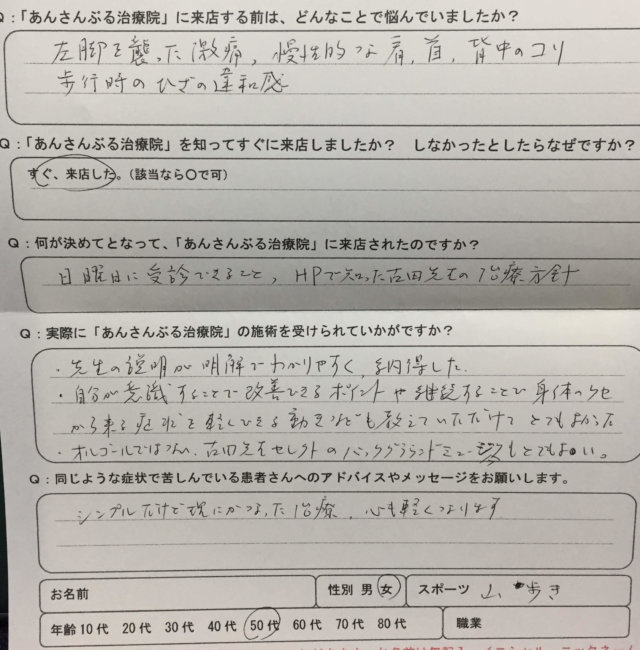 Q：「あんさんぶる治療院」に来店する前は、どんなことで悩んでいましたか？
左脚を襲った激痛，慢性的な肩，首，背中のコリ
歩行時のひざの違和感
Q：「あんさんぶる治療院」を知ってすぐに来店しましたか？　しなかったとしたらなぜですか？
すぐ、来店した。（該当なら〇で可）
Q：何が決めてとなって、「あんさんぶる治療院」に来店されたのですか？
日曜日に受診できること，HPで知った吉田先生の治療方針
Q：実際に「あんさんぶる治療院」の施術を受けられていかがですか？
・先生の説明が明解でわかりやすく，納得した。
・自分が意識することで改善できるポイントや継続することで身体のクセ
から来る症状を軽くできる動きなども教えていただけて とてもよかった
・オルゴールではない，吉田先生セレクトのバックグラウンドミュージックもとてもよい。
Q：同じような症状で苦しんでいる患者さんへのアドバイスやメッセージをお願いします。
シンプルだけど理にかなった治療，心も軽くなります
お名前　性別 男 女　スポーツ 山歩き
年齢 10代 20代 30代 40代 50代 60代 70代 80代　職業